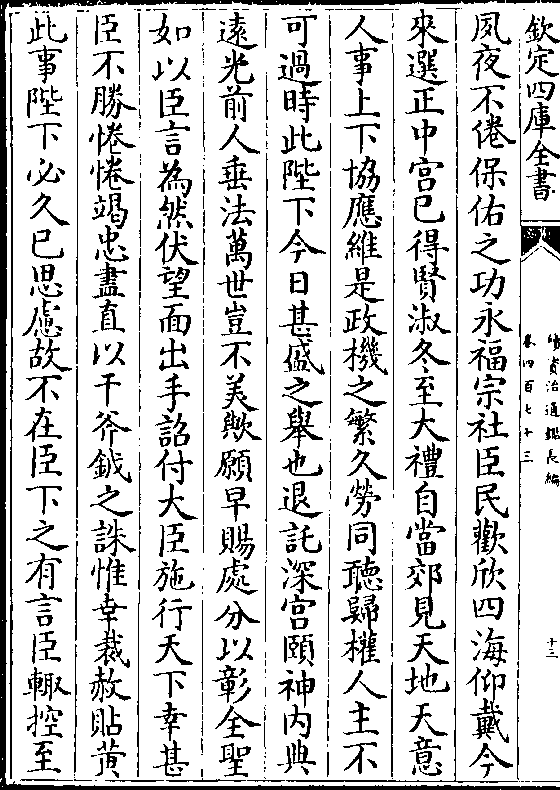 欽定四庫全書
續資治通鑑長編
卷四百七十三
十三
夙夜不倦保佑之功永福宗社臣民歡欣四海仰戴今
來選正中宫已得賢淑冬至大禮自當郊見天地天意
人事上下協應維是政機之繁久勞同聽歸權人主不
可過時此陛下今日甚盛之舉也退託深宫頤神内典
遠光前人垂法萬世豈不美歟願早賜處分以彰全聖
如以臣言為然伏望面出手詔付大臣施行天下幸甚
臣不勝惓惓竭忠盡直以干斧鉞之誅惟幸裁赦貼黄
此事陛下必久已思慮故不在臣下之有言臣輙控至